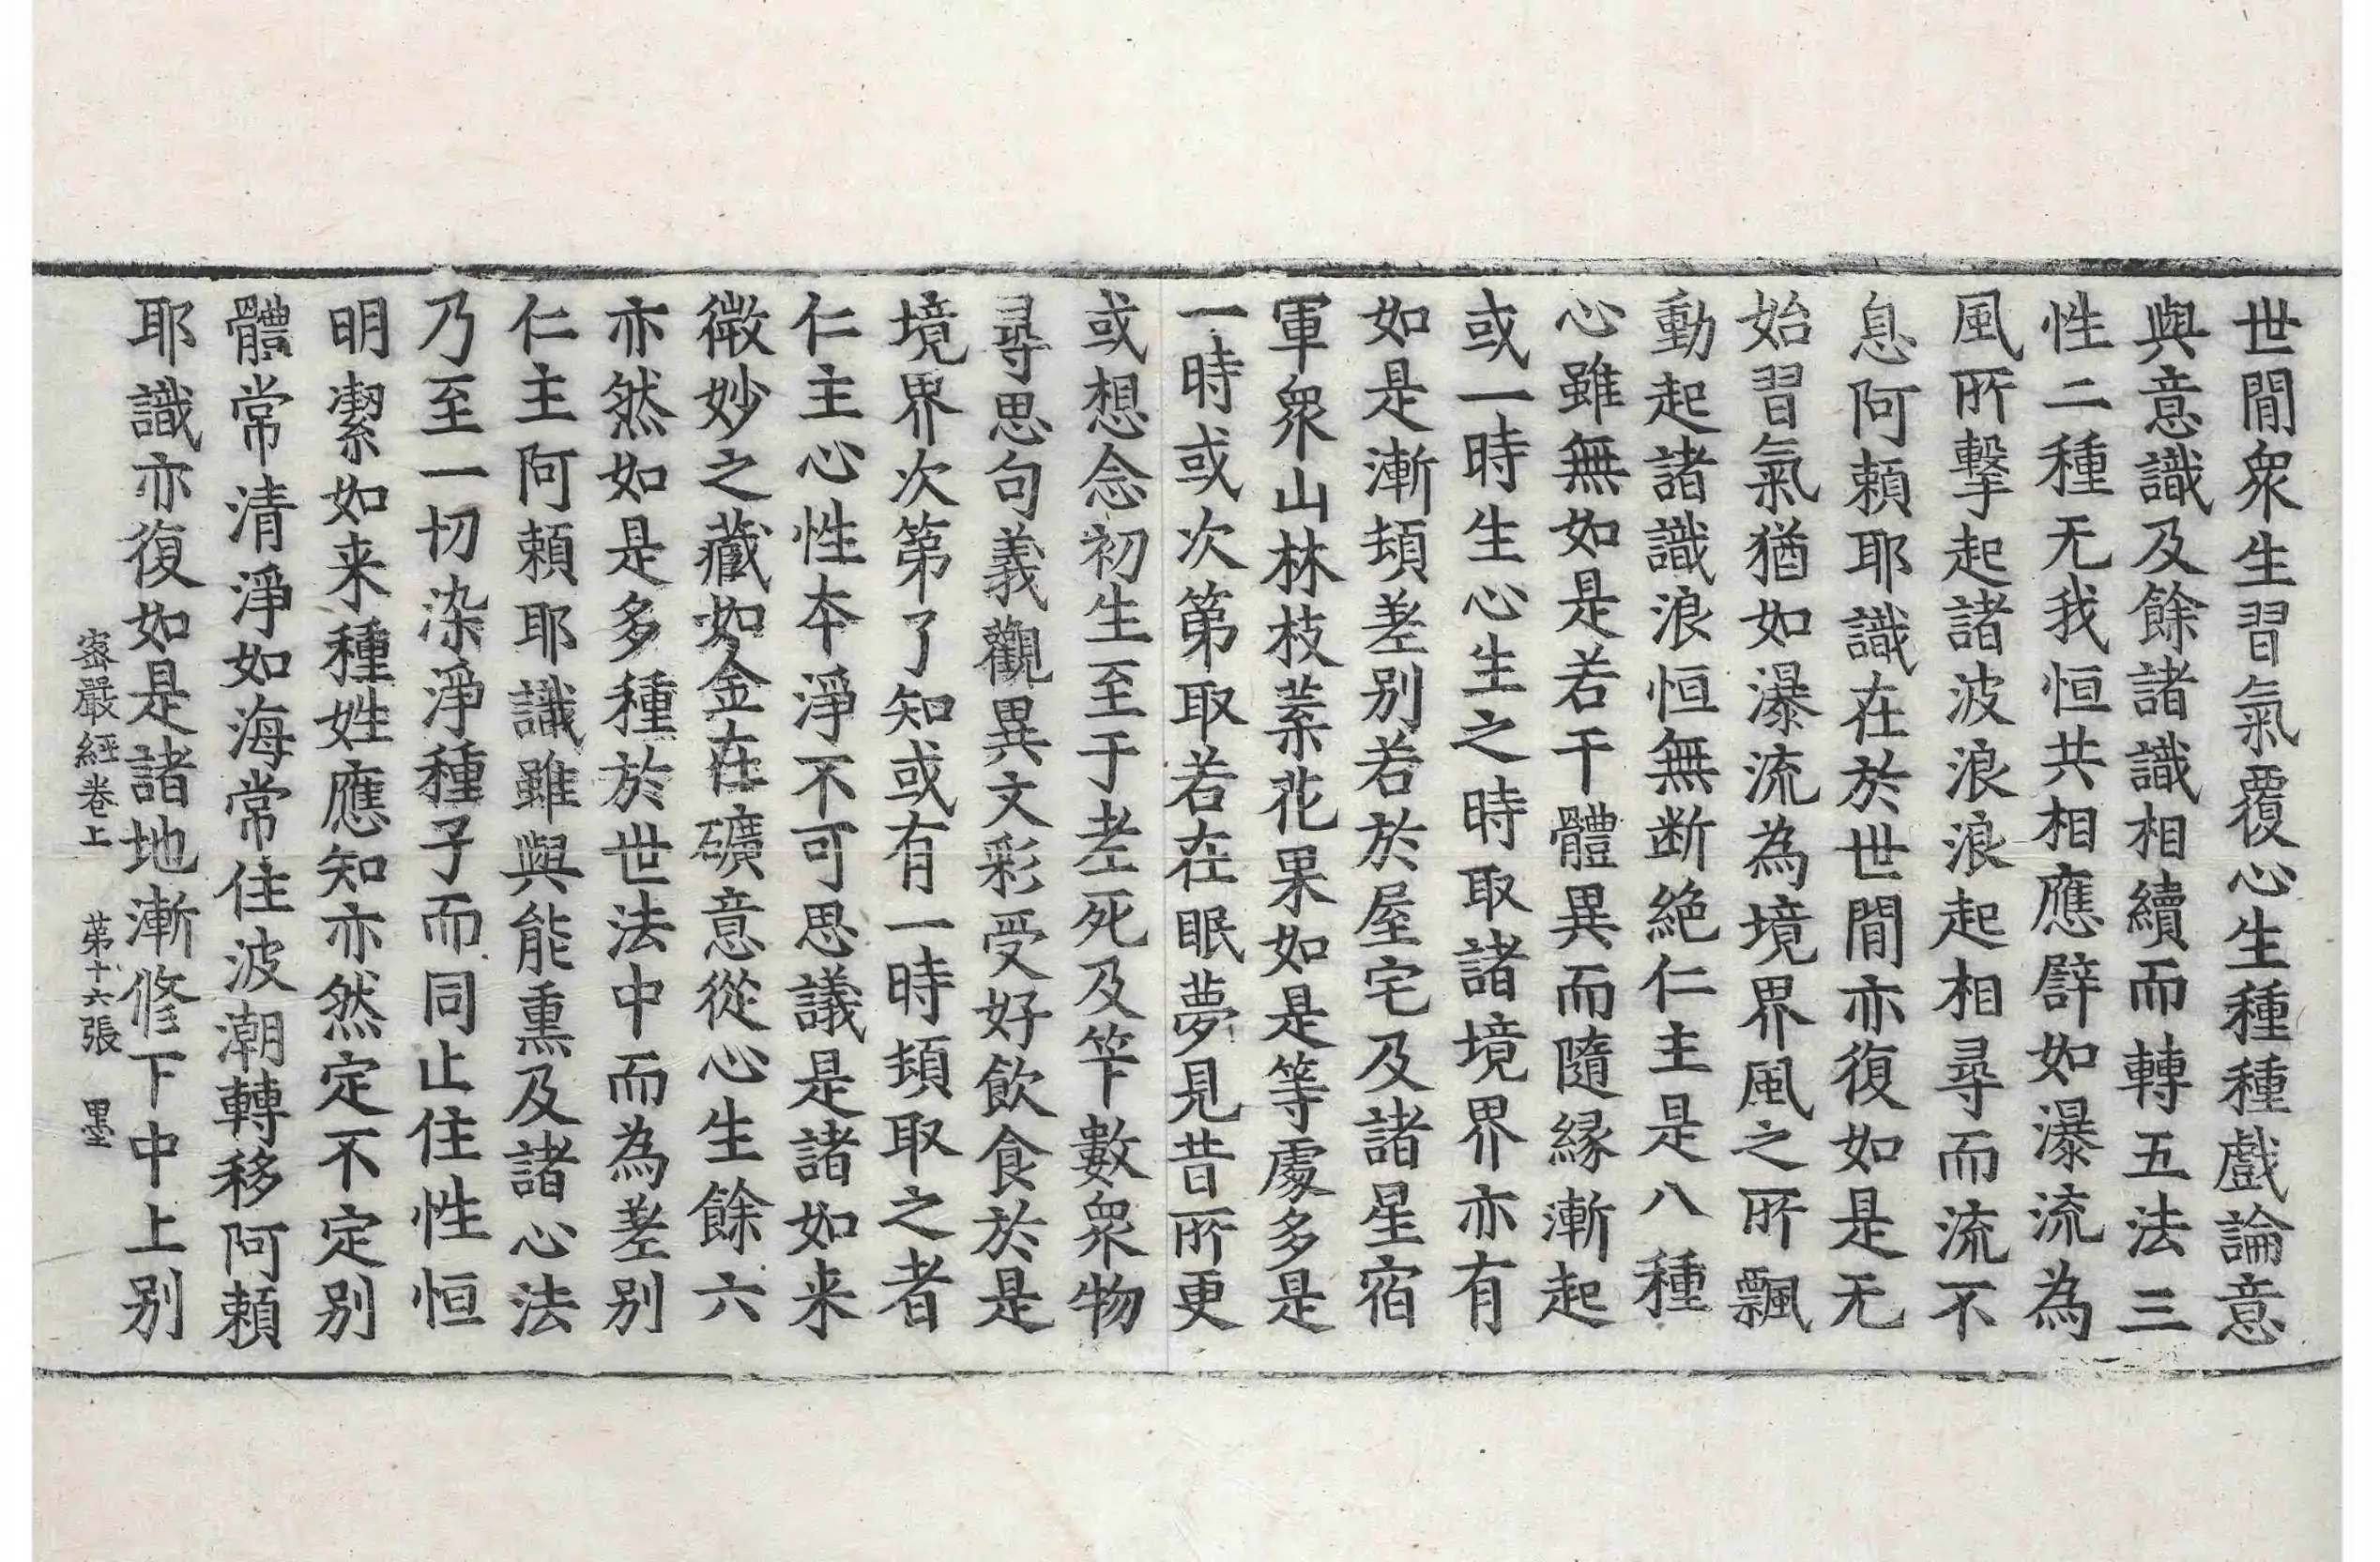 世閒衆生習氣覆心生種種戲論意
與意識及餘諸識相續而轉五法三
性二種无我恒共相應譬如瀑流為
風所擊起諸波浪浪起相尋而流不
息阿頼耶識在於世閒亦復如是无
始習氣猶如瀑流為境界風之所飄
動起諸識浪恒無断絶仁主是八種
心雖無如是若干體異而隨縁漸起
或一時生心生之時取諸境界亦有
如是漸頓差别若於屋宅及諸星宿
軍衆山林枝葉花果如是等處多是
一時或次第取若在眠夢見昔所更
或想念初生至于老死及筭數衆物
尋思句義觀異文彩受好飲食於是
境界次第了知或有一時頓取之者
仁主心性本淨不可思議是諸如来
微妙之藏如金在礦意從心生餘六
亦然如是多種於世法中而為差别
仁主阿頼耶識雖與能熏及諸心法
乃至一切染淨種子而同止住性恒
明潔如来種姓應知亦然定不定别
體常清淨如海常住波潮轉移阿頼
耶識亦復如是諸地漸修下中上别
密嚴經卷上 第十六張 墨